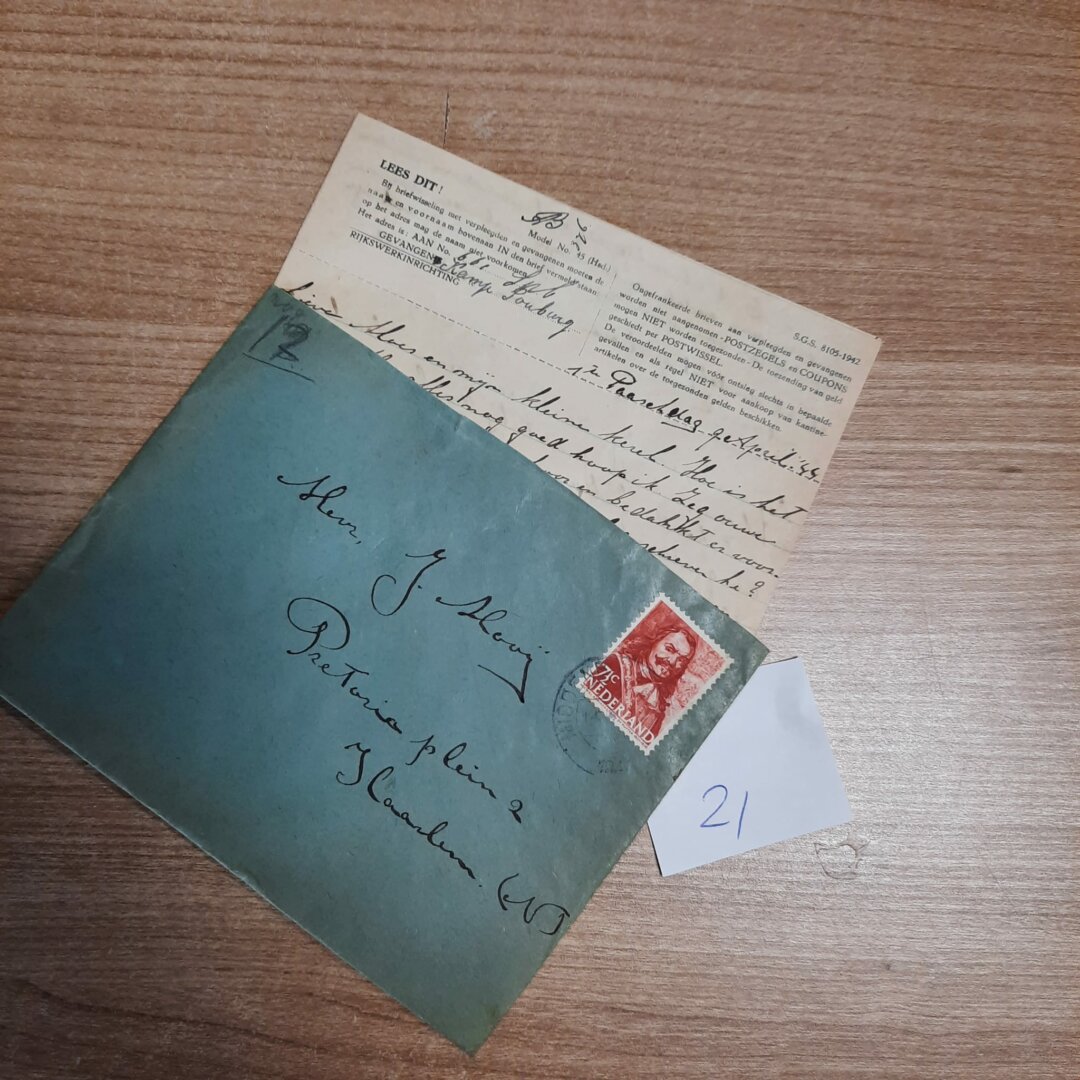 LEES DIT!
Bij briefwisseling met verpleegden en gevangenen moeten de
naam en voornaam bovenaan IN den brief vermeld staan:
op het adres mag de naam niet voorkomen.
Het adres is: AAN No.
GEVANGEN Kamp Souburg
RIJKSWERKINRICHTING
Model No. 45 (Hed.)
S.G.S. 8105-1942
Ongefrankeerde brieven aan verpleegden en gevangenen
worden niet aangenomen - POSTZEGELS en COUPONS
mogen NIET worden toegezonden - De toezending van geld
geschiedt per POSTWISSEL.
De veroordeelden mogen vóór ontslag slechts in bepaalde
gevallen en als regel NIET voor aankoop van kantine-
artikelen over de toegezonden gelden beschikken.
1e Paaschdag 9 April '44.
Lieve Moes en mijn kleine kerel. Hoe is het
alles nog goed hoop ik. Zeg ouwe
en bedankt er voor.
schreven he?
12
Den, J. Mooij
Pretoria plein 2
Haarlem. (N)
7½c
NEDERLAND
21